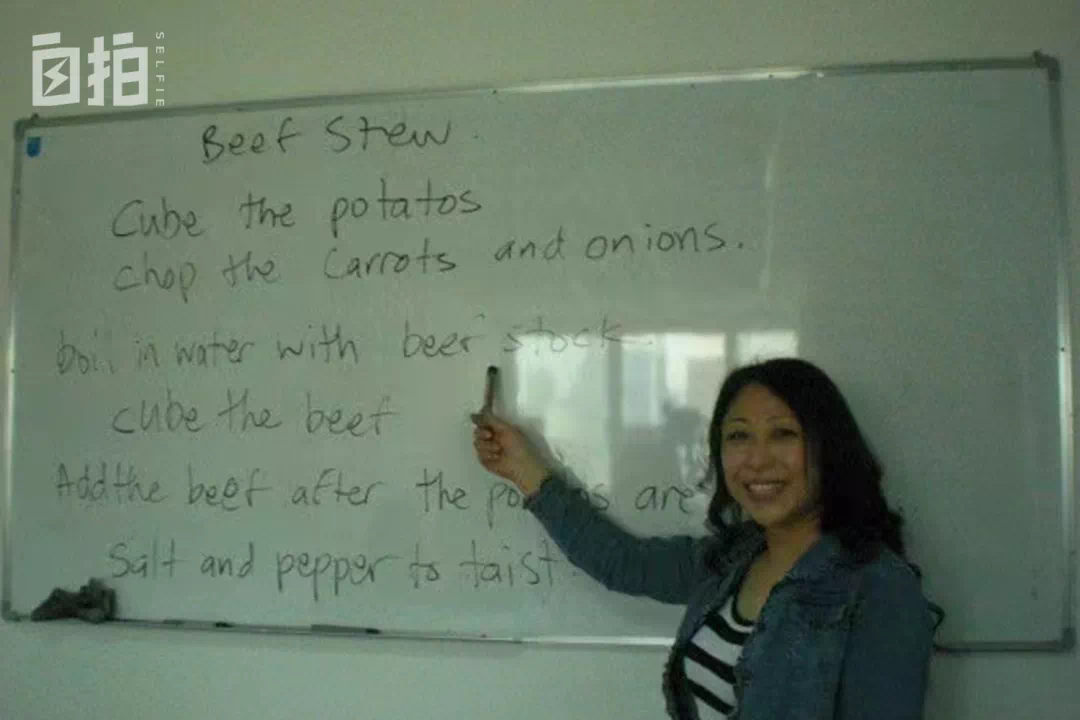 自拍
SELFIE
Beef Stew.
Cube the potatos
chop the carrots and onions.
boil in water with beef stock.
cube the beef
Add the beef after the are
Salt and pepper to taist